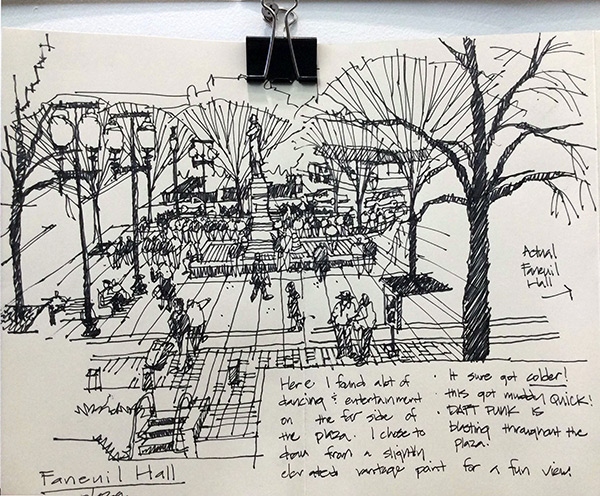 Actual
Faneuil
Hall
Here I found a lot of
dancing & entertainment
on the far side of
the plaza. I chose to
draw from a slightly
elevated vantage point for a fun view.
· It sure got colder!
· this got muddy QUICK!
· DAFT PUNK is
blasting throughout the
plaza.
Faneuil Hall
plaza